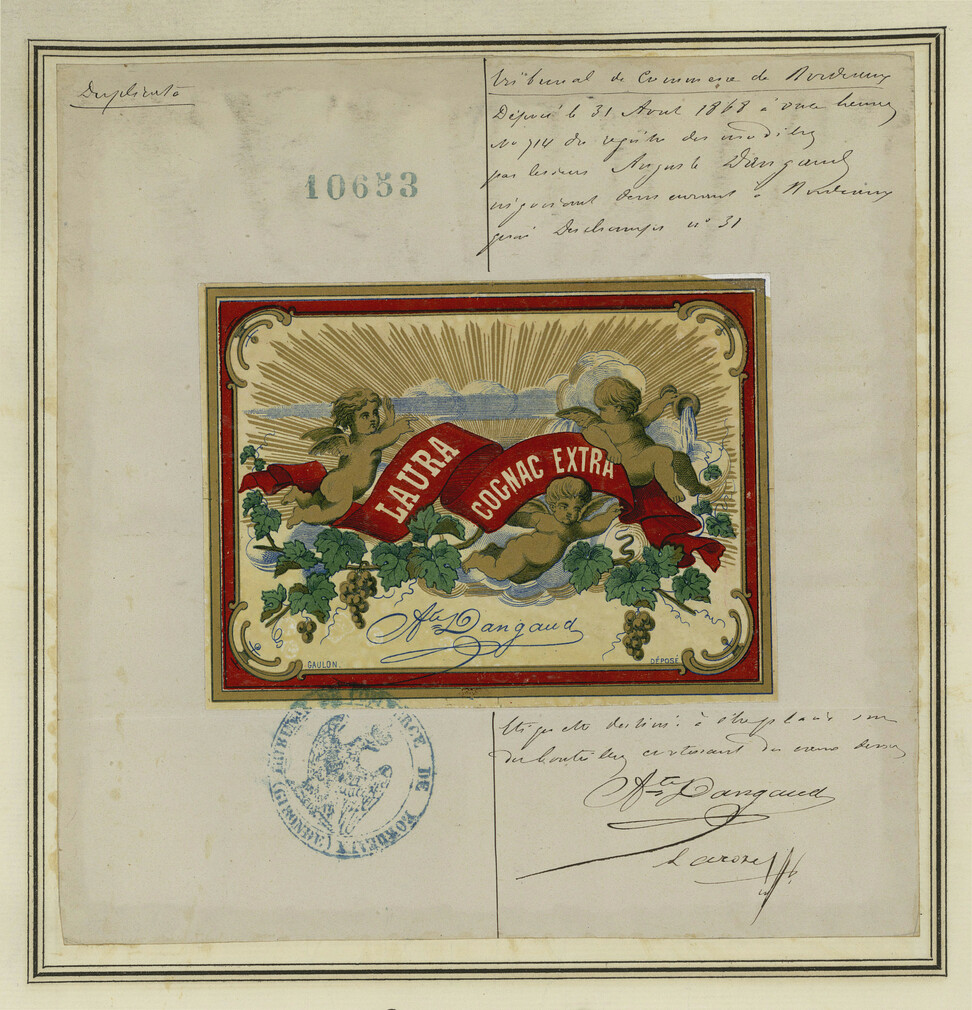 Duplicata
10653
Tribunal de Commerce de Bordeaux
Déposé le 31 Aout 1868 à onze heures
No 714 du registre des modèles
par le sieur Auguste Dangaud
négociant demeurant à Bordeaux
quai Deschamps n° 31
LAURA
COGNAC EXTRA
Ate Dangaud
GAULON.
DÉPOSÉ
TRIBUNAL DE COMMERCE DE BORDEAUX (GIRONDE)
Etiquette destinée à être placée sur
des bouteilles contenant du
Ate Dangaud